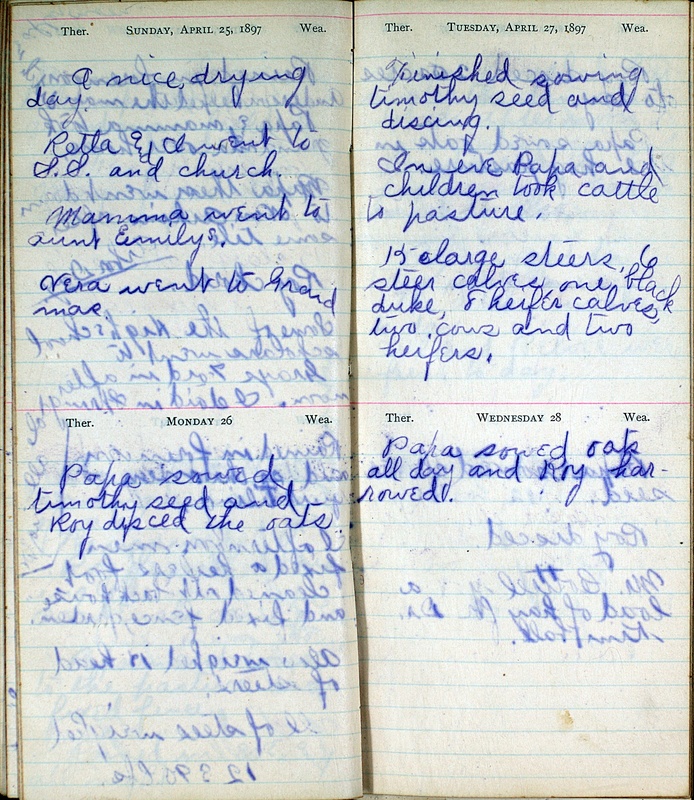 Ther. SUNDAY, APRIL 25, 1897 Wea.
A nice, drying
day.
Retta & I went to
S.S. and church.
Mamma went to
aunt Emily's.
Vera went to Grand
mas.
Ther. MONDAY 26 Wea.
Papa sowed
timothy seed and
Roy disced the oats.
Ther. TUESDAY, APRIL 27, 1897 Wea.
Finished sowing
timothy seed and
discing.
In eve Papa and
children took cattle
to pasture.
15 large steers, 6
steer calves, one black
duke, 8 heifer calves,
two cows and two
heifers.
Ther. WEDNESDAY 28 Wea.
Papa sowed oats
all day and Roy har-
rowed.